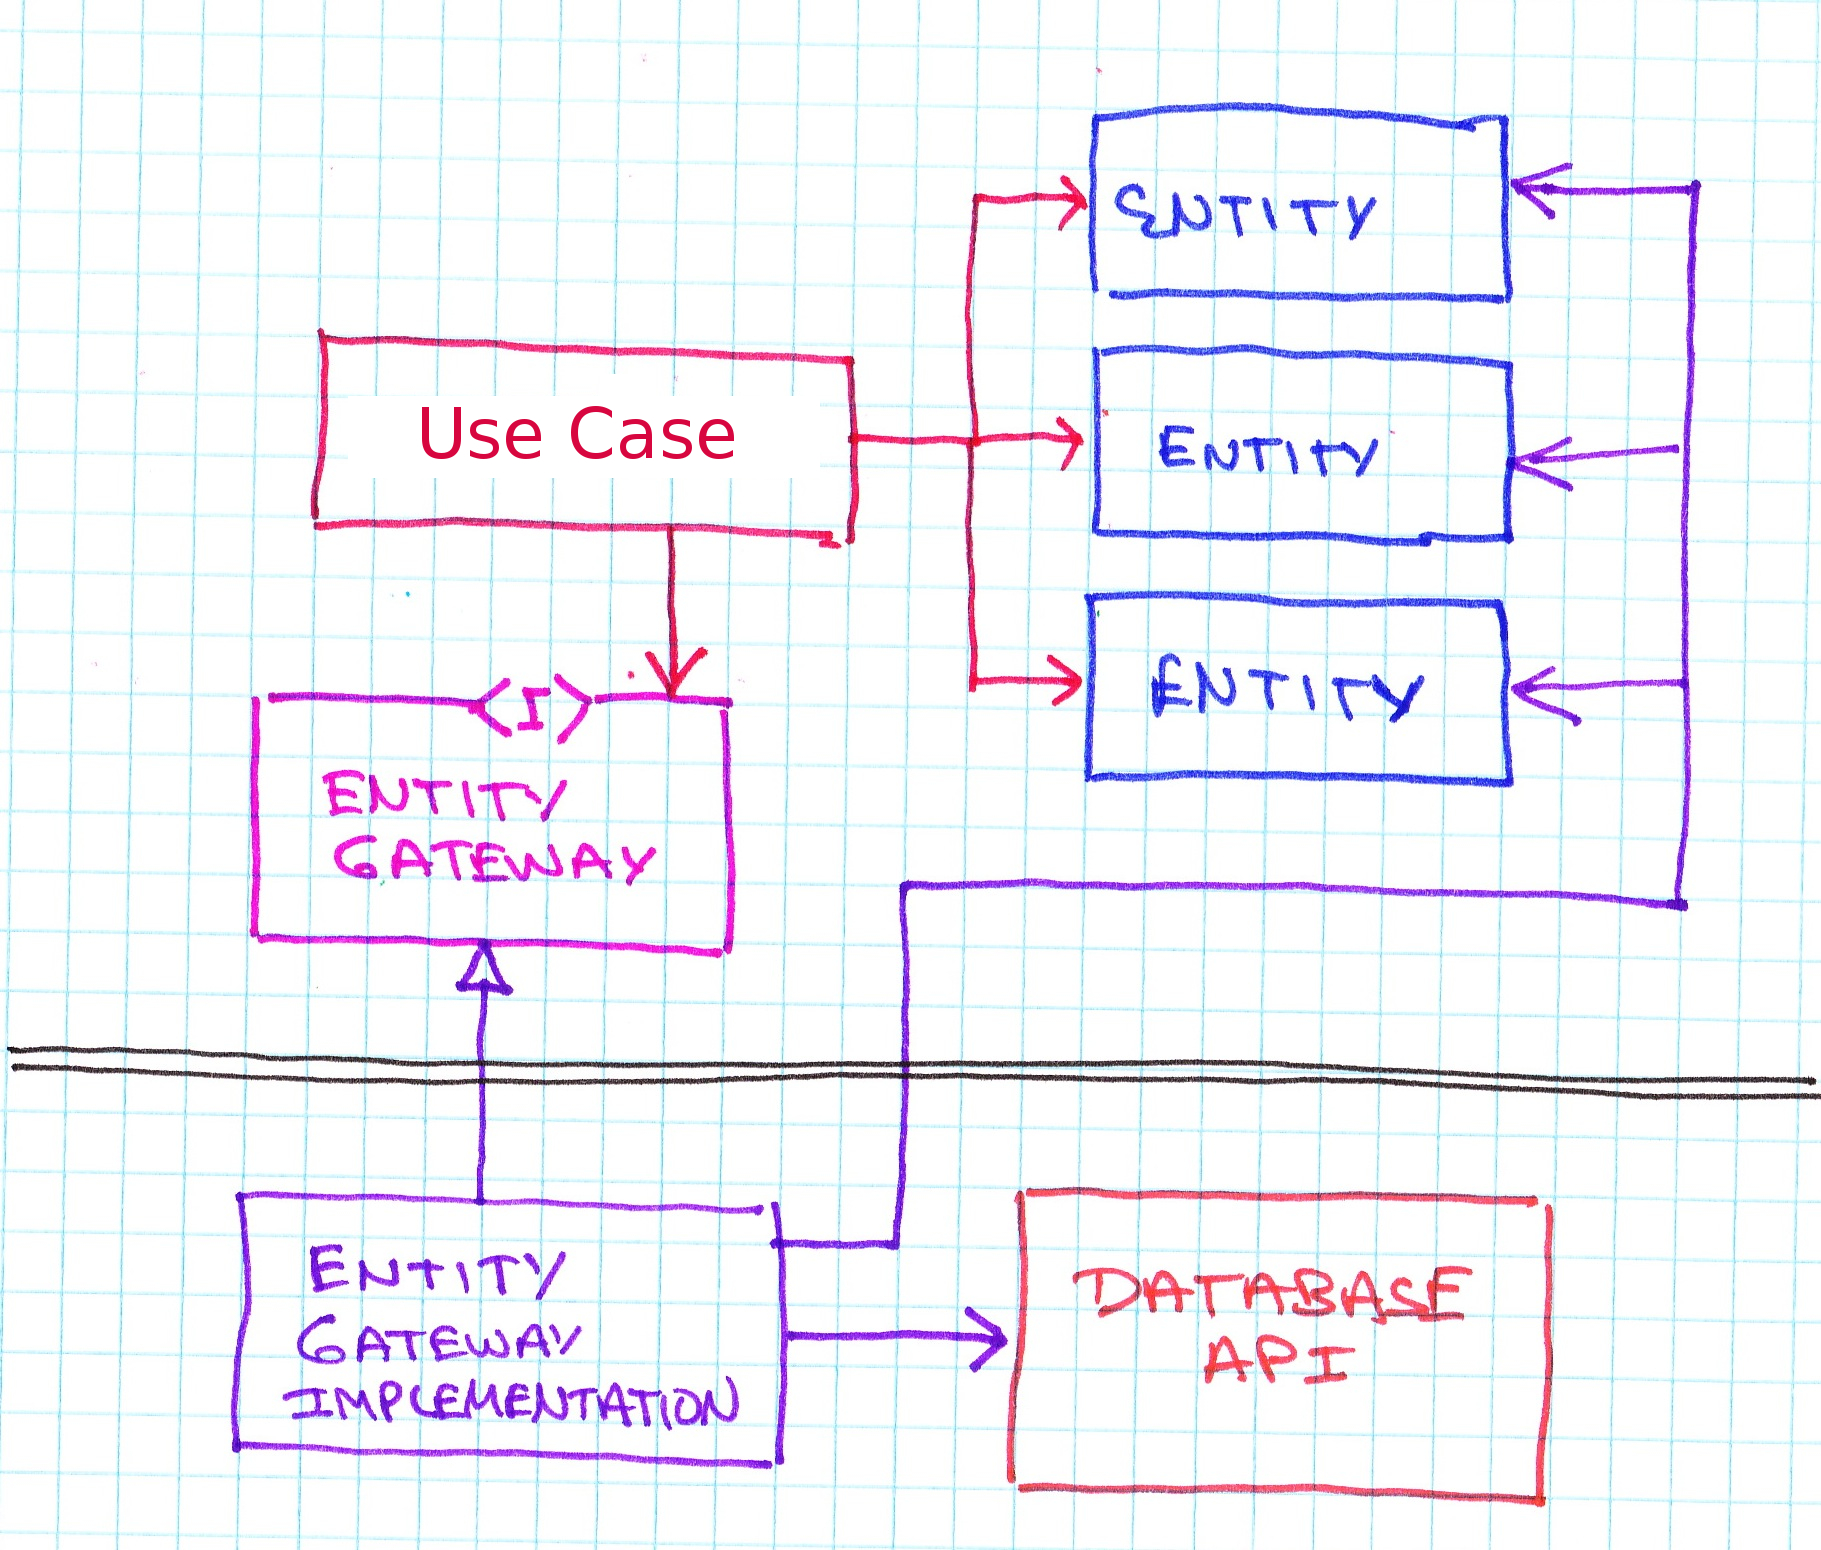 ENTITY
Use Case
ENTITY
ENTITY
<I>
ENTITY
GATEWAY
ENTITY
GATEWAY
IMPLEMENTATION
DATABASE
API